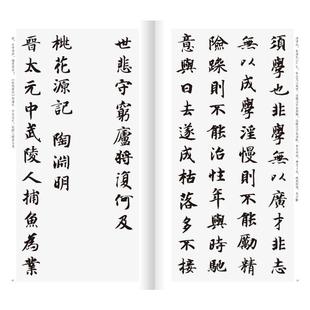 須學也非學無以廣才非志
無以成學淫慢則不能勵精
險躁則不能治性年與時馳
意與日去遂成枯落多不接
世悲守窮廬將復何及
桃花源記 陶淵明
晉太元中武陵人捕魚為業